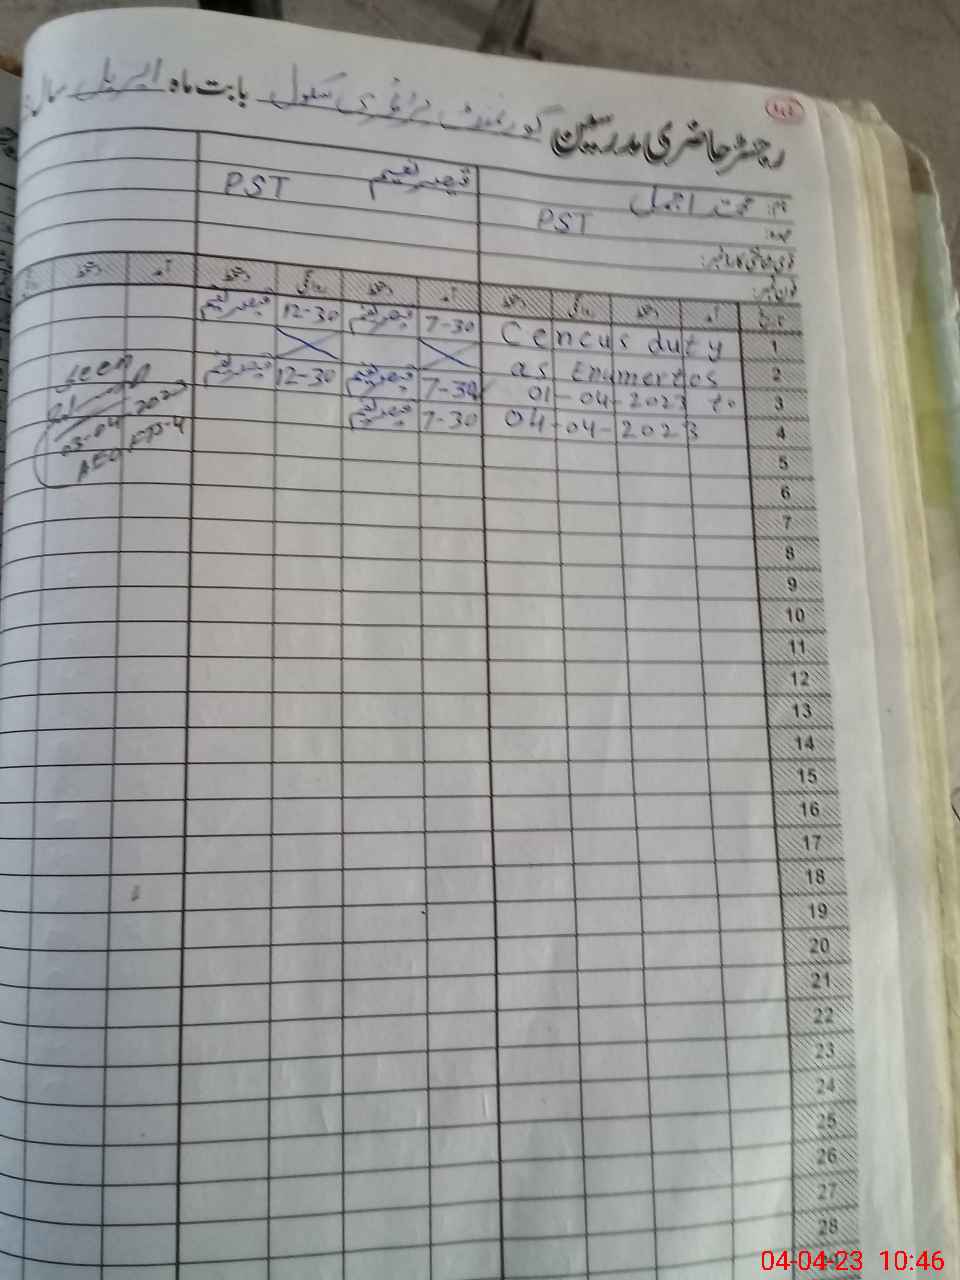 رجسٹر حاضری مدرسین گورنمنٹ پرائمری سکول بابت ماہ اپریل سال:
نام: محمد اجمل قیصر نعیم
عہدہ: PST PST
قومی شناختی کارڈ نمبر:
فون نمبر:
تاریخ آمد دستخط روانگی دستخط آمد دستخط روانگی دستخط آمد دستخط
1 Cencus duty 7-30 قیصر نعیم 12-30 قیصر نعیم
2 as Enumertos
3 01-04-2023 to 7-30 قیصر نعیم 12-30 قیصر نعیم
4 04-04-2023 7-30 قیصر نعیم
seen
03-04-2023
AEO
5
6
7
8
9
10
11
12
13
14
15
16
17
18
19
20
21
22
23
24
25
26
27
28
04-04-23 10:46